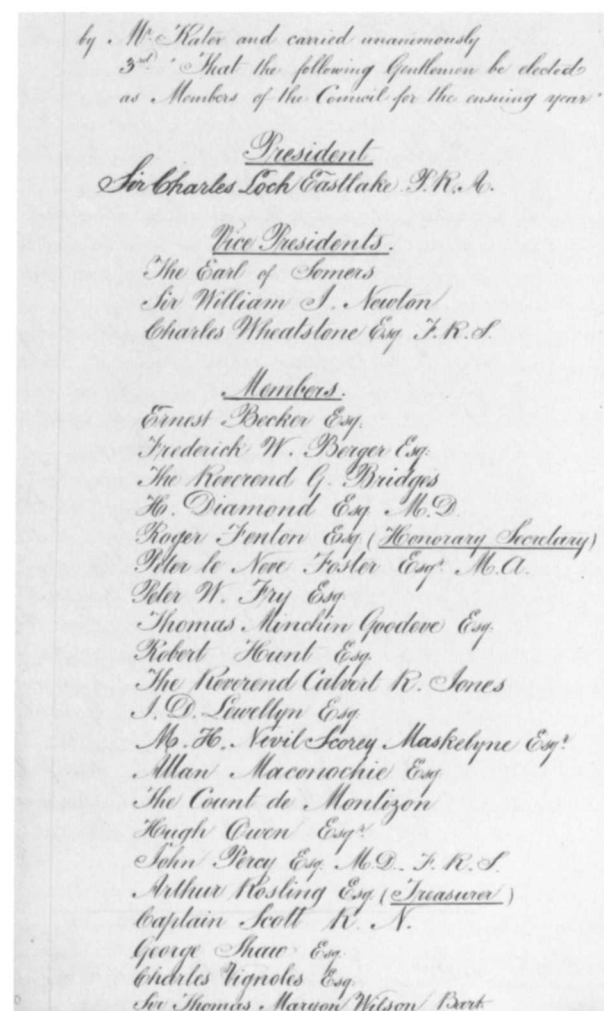 by Mr. Kater and carried unanimously
3rd "That the following Gentlemen be elected
as Members of the Council for the ensuing year"
President
Sir Charles Lock Eastlake P.R.A.
Vice Presidents.
The Earl of Somers
Sir William J. Newton
Charles Wheatstone Esq F.R.S.
Members.
Ernest Becker Esq.
Frederick W. Berger Esq.
The Reverend G. Bridges
H. Diamond Esq M.D.
Roger Fenton Esq (Honorary Secretary)
Peter le Neve Foster Esqr. M.A.
Peter W. Fry Esq.
Thomas Minchin Goodeve Esq.
Robert Hunt Esq.
The Reverend Calvert R. Jones
J. D. Lewellyn Esq
M. H. Nevil Scorey Maskelyne Esqr.
Allan Maconochie Esq
The Count de Montizon
Hugh Owen Esqr.
John Percy Esq. M.D. F.R.S.
Arthur Rosling Esq (Treasurer)
Captain Scott R. N.
George Shaw Esq.
Charles Vignoles Esq.
Sir Thomas Maryon Wilson Bart.